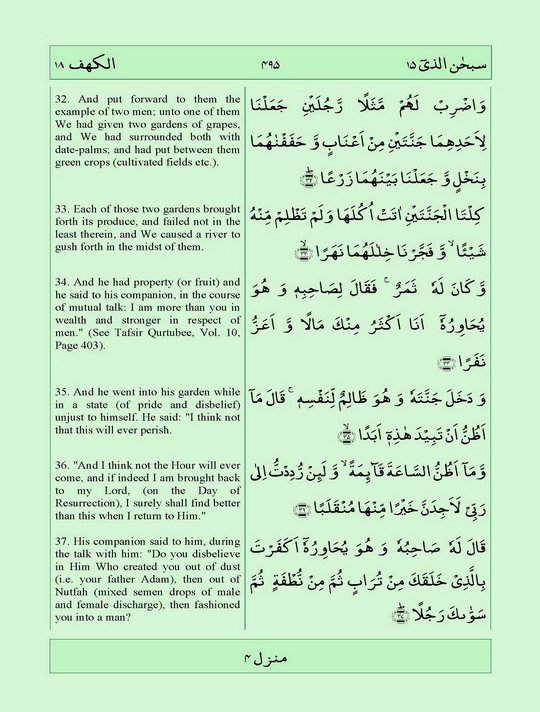 الكهف ١٨
٤٩٥
سبحٰن الذیٓ ١٥
32. And put forward to them the
example of two men; unto one of them
We had given two gardens of grapes,
and We had surrounded both with
date-palms; and had put between them
green crops (cultivated fields etc.).
وَاضْرِبْ لَهُمْ مَّثَلًا رَّجُلَيْنِ جَعَلْنَا
لِاَحَدِهِمَا جَنَّتَيْنِ مِنْ اَعْنَابٍ وَّ حَفَفْنٰهُمَا
بِنَخْلٍ وَّ جَعَلْنَا بَيْنَهُمَا زَرْعًا ؕ﴿۳۲﴾
33. Each of those two gardens brought
forth its produce, and failed not in the
least therein, and We caused a river to
gush forth in the midst of them.
كِلْتَا الْجَنَّتَيْنِ اٰتَتْ اُكُلَهَا وَلَمْ تَظْلِمْ مِّنْهُ
شَيْـًٔا ۙ وَّ فَجَّرْنَا خِلٰلَهُمَا نَهَرًا ۙ﴿۳۳﴾
34. And he had property (or fruit) and
he said to his companion, in the course
of mutual talk: I am more than you in
wealth and stronger in respect of
men." (See Tafsir Qurtubee, Vol. 10,
Page 403).
وَّ كَانَ لَهٗ ثَمَرٌ ۚ فَقَالَ لِصَاحِبِهٖ وَ هُوَ
يُحَاوِرُهٗۤ اَنَا اَكْثَرُ مِنْكَ مَالًا وَّ اَعَزُّ
نَفَرًا ﴿۳۴﴾
35. And he went into his garden while
in a state (of pride and disbelief)
unjust to himself. He said: "I think not
that this will ever perish.
وَ دَخَلَ جَنَّتَهٗ وَ هُوَ ظَالِمٌ لِّنَفْسِهٖ ۚ قَالَ مَاۤ
اَظُنُّ اَنْ تَبِيْدَ هٰذِهٖۤ اَبَدًا ۙ﴿۳۵﴾
36. "And I think not the Hour will ever
come, and if indeed I am brought back
to my Lord, (on the Day of
Resurrection), I surely shall find better
than this when I return to Him."
وَّ مَاۤ اَظُنُّ السَّاعَةَ قَآئِمَةً ۙ وَّ لَئِنْ رُّدِدْتُّ اِلٰى
رَبِّيْ لَاَجِدَنَّ خَيْرًا مِّنْهَا مُنْقَلَبًا ﴿۳۶﴾
37. His companion said to him, during
the talk with him: "Do you disbelieve
in Him Who created you out of dust
(i.e. your father Adam), then out of
Nutfah (mixed semen drops of male
and female discharge), then fashioned
you into a man?
قَالَ لَهٗ صَاحِبُهٗ وَ هُوَ يُحَاوِرُهٗۤ اَكَفَرْتَ
بِالَّذِيْ خَلَقَكَ مِنْ تُرَابٍ ثُمَّ مِنْ نُّطْفَةٍ ثُمَّ
سَوّٰىكَ رَجُلًا ؕ﴿۳۷﴾
منزل ۴